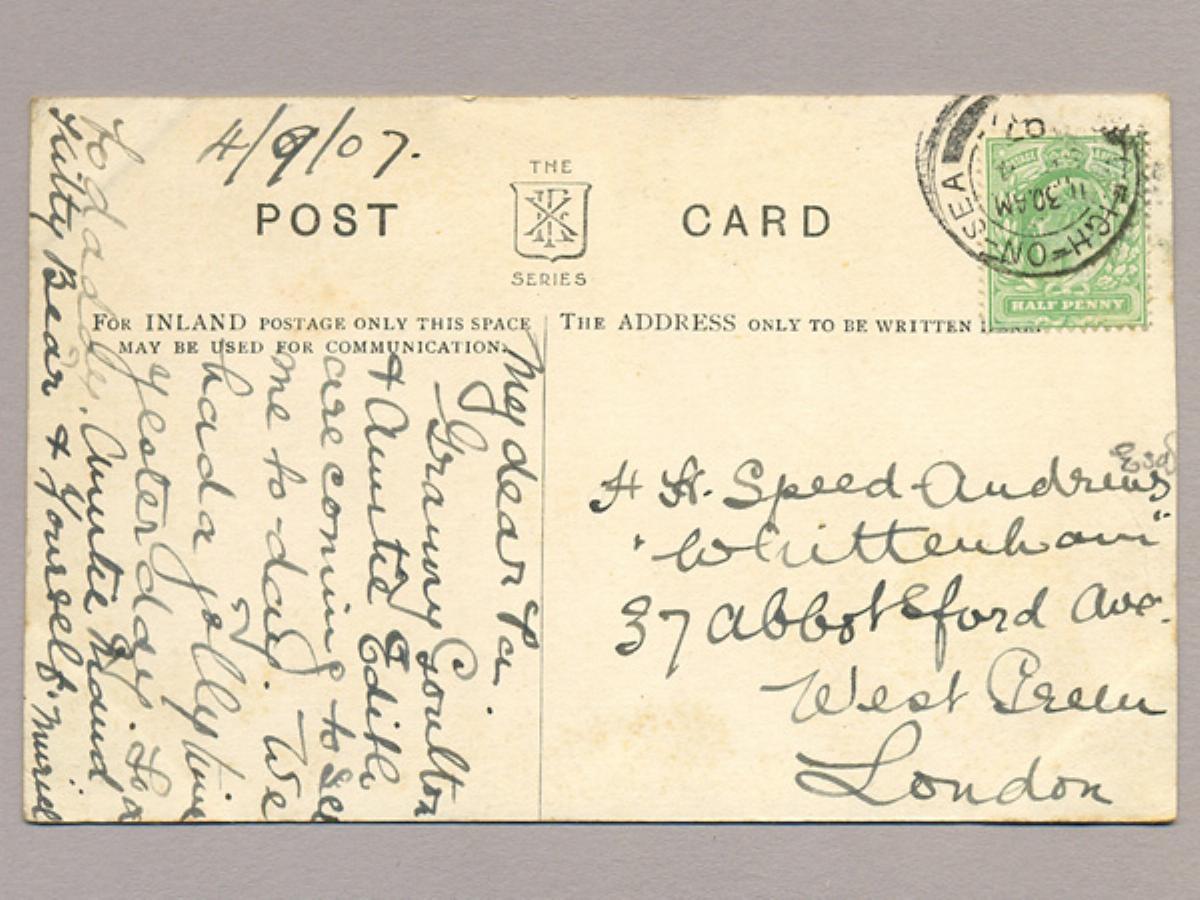 4/9/07.
THE
POST CARD
SERIES
LEIGH-ON-SEA
11.30AM
07
HALF PENNY
FOR INLAND POSTAGE ONLY THIS SPACE
MAY BE USED FOR COMMUNICATION.
THE ADDRESS ONLY TO BE WRITTEN HERE.
My dear Pa.
Granny Goulton
& Auntie Edith
are coming to see
me to-day. We
had a jolly time
yesterday.
to daddy. Auntie Maud
Kitty Bear & Yourself. Muriel
Esq
H St. Speed-Andrews
"Whittenham"
37 Abbotsford Ave.
West Green
London